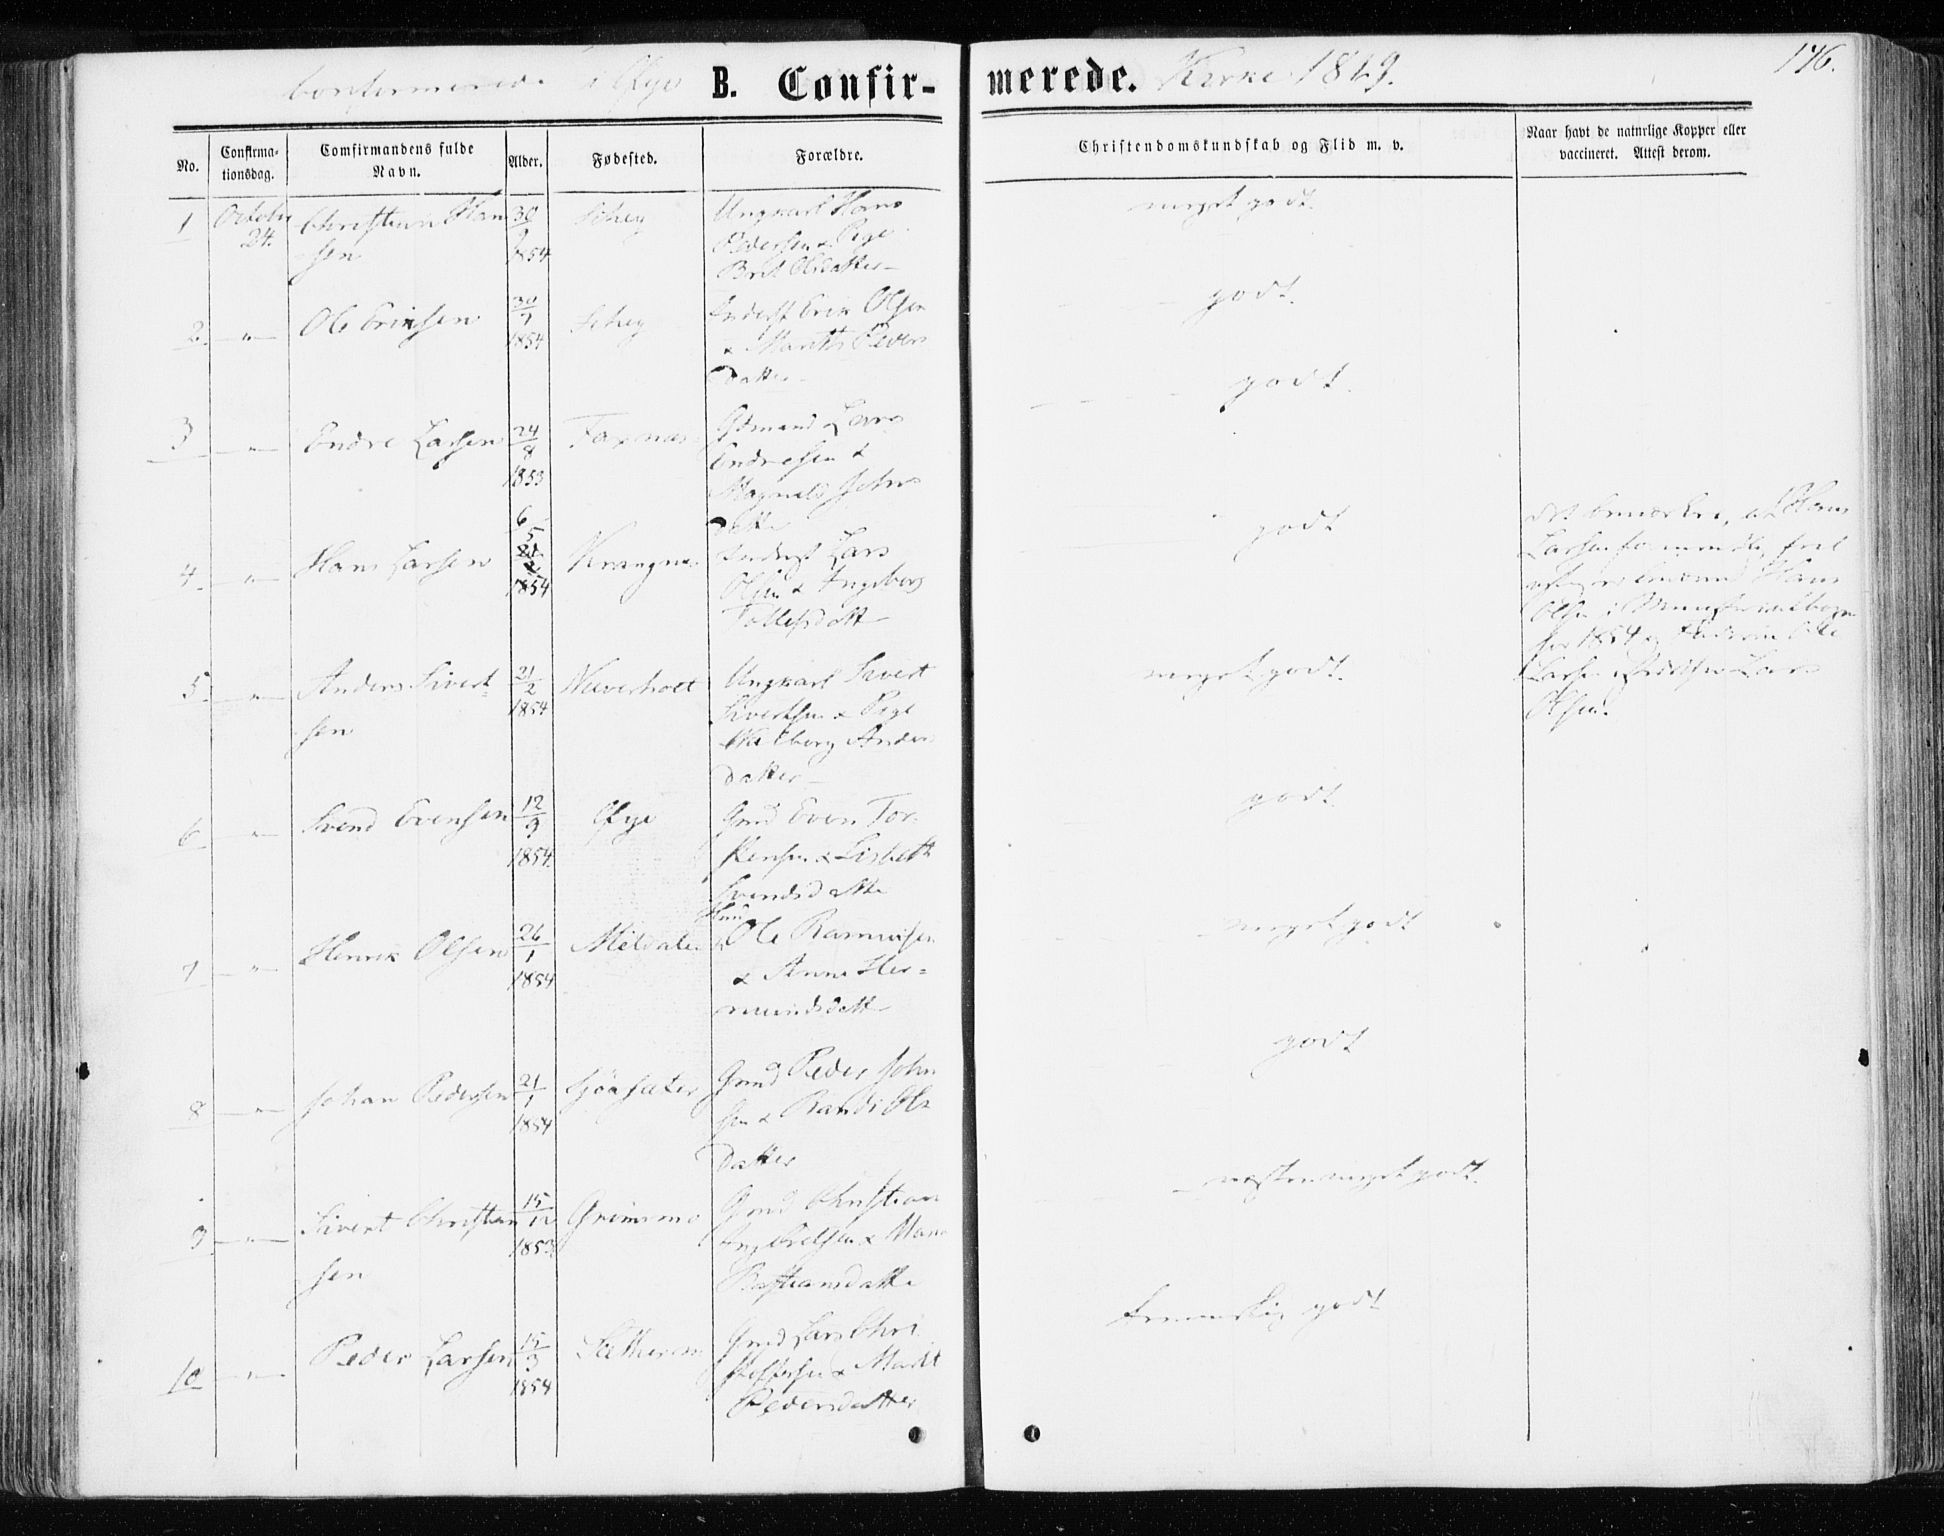 Confirmerede i Øye B. Confirmerede. Kirke 1869. 146.
No. Confirmationsdag. Comfirmandens fulde Navn. Alder. Fødested. Forældre. Christendomskundskab og Flid m. v. Naar havt de naturlige Kopper eller vaccineret. Attest derom.
1 October 24. Christian Hansen 30/9 1854 Ungkarl Hans Pedersen & Pige Brit Olsdatter meget godt.
2. " Ole Eriksen 30/7 1854 Inderst Erik Olsen & Marith Pedersdatter godt.
3 " Endre Larsen 24/8 1853 Gdmand Lars Endresen & Magnild Johnsdatter godt.
4. " Hans Larsen 6/5 1854 Krangnes Inderst Lars Olsen & Ingeborg Tollefsdatt godt
det bemærkes, at Hans
Larsen
Hans
Olsen i Ministerialbogen
for 1854
Larsen Lars
Olsen.
5. " Anders Sivertsen 21/2 1854 Neverholt Ungkarl Sivert Sivertsen & Pige Andersdatter meget godt.
6 " Svend Evensen 12/9 1854. Øye Gmd Even Torkensen & Lisbeth Svendsdatte godt
7 " Henrik Olsen 26/1 1854 Mildalen Ole Rasmusen & Anne Hermundsdatt meget godt
8 " Johan Pedersen 21/1 1854 Sjöasæter Gmd Peder Johnsen & Randi Olsdatter godt
9 " Sivert Christiansen 15/12 1853 Grimsmo Gmd Christian Ingebretsen & Bastiansdatte næsten meget godt.
10 " Peder Larsen 15/3 1854 Gmd Lars Christoffersen & Marit Pedersdatter temmelig godt